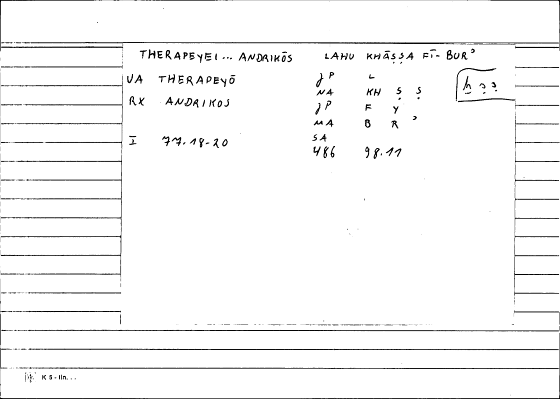 THERAPEYEI... ANDRIKŌS LAHU KHĀṢṢA FĪ-BURʾ
VA THERAPEYŌ ȷP L
NA KH Ṣ Ṣ
RX ANDRIKOS ȷP F Y
MA B R ʾ
I 77.18-20 SA
486 98.11
K 5 - lin...